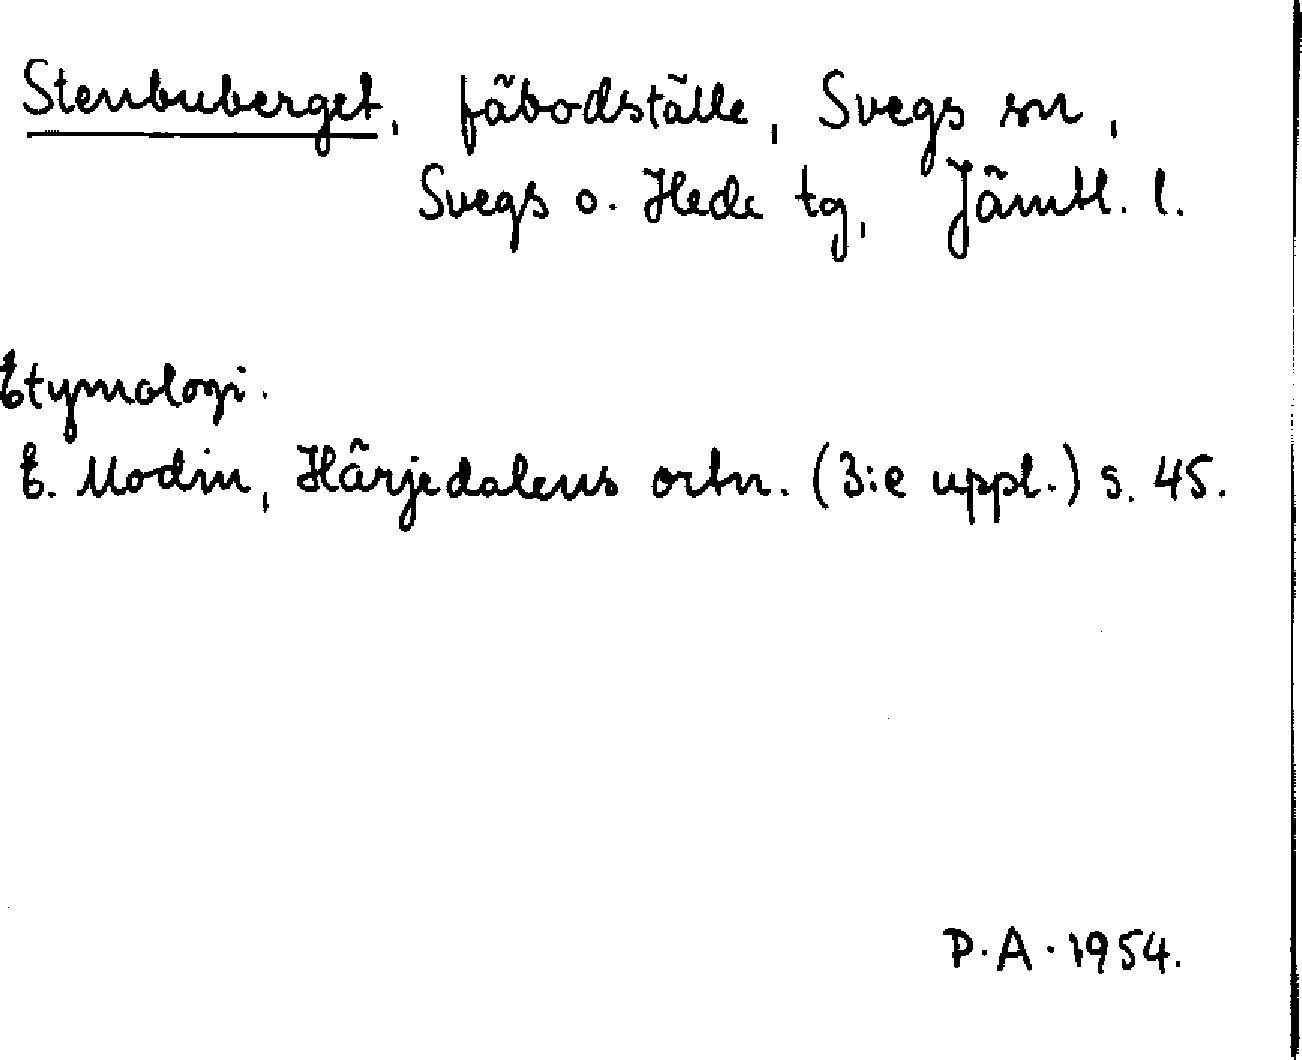 Stenbuberget, fäbodställe, Svegs sn,
Svegs o. Hede tg, Jämtl. l.
Etymologi.
E. Modin, Härjedalens ortn. (3:e uppl.) s. 45.
P.A. 1954.